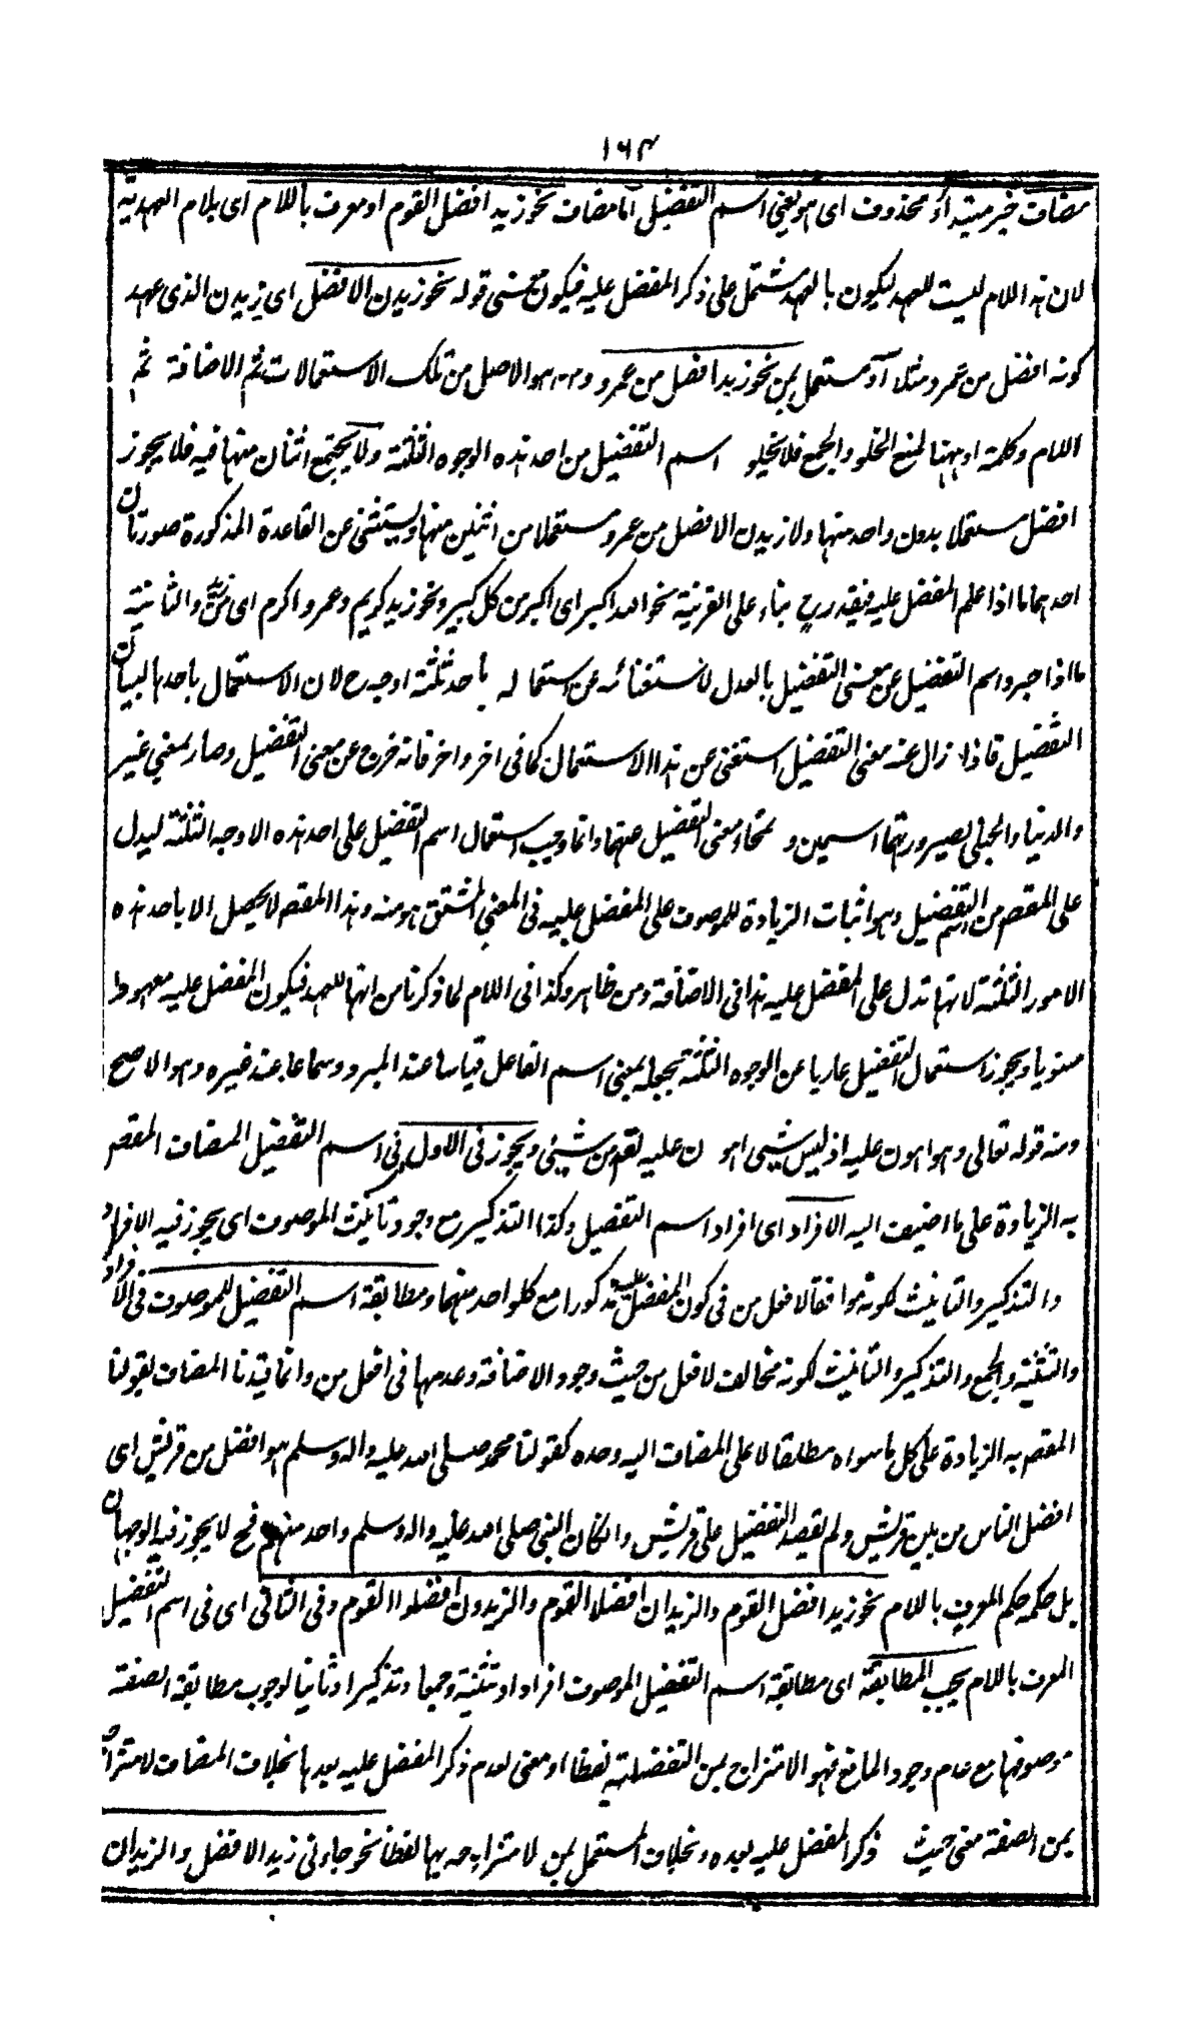 ١٦٤
مضاف خبر مبتدأ محذوف اى هو يعنى اسم التفضيل اما مضاف نحو زيد افضل القوم او معرف باللام اى بلام العهدية
لان هذه اللام ليست للعهد ليكون بالعهد مشتمل على ذكر المفضل عليه فيكون معنى قوله نحو زيدن الافضل اى زيدن الذى عهد
كونه افضل من عمرو مثلا او مستعمل بمن نحو زيد افضل من عمرو ومن هو الاصل من تلك الاستعمالات ثم الاضافة ثم
اللام وكلمة او ههنا لمنع الخلو والجمع فلا يخلو اسم التفضيل من احد هذه الوجوه الثلثة ولا يجتمع اثنان منها فيه فلا يجوز
افضل مستعملا بدون واحد منها ولا زيدن الافضل من عمرو مستعملا من اثنين منها ويستثنى عن القاعدة المذكورة صورتان
احدهما ما اذا علم المفضل عليه فيقدر ح بناء على القرينة نحو الله اكبر اى اكبر من كل كبير ونحو زيد كريم وعمرو اكرم اى والثانية
ما اذا جرد اسم التفضيل عن معنى التفضيل بالعدل لاستغنائه عن استعماله باحد ثلثة اوجه ح لان الاستعمال باحدها لبيان
التفضيل فاذا زال عنه معنى التفضيل استغنى عن هذا الاستعمال كما فى اخر واخر فانه خرج عن معنى التفضيل وصار بمعنى غير
والدنيا والجلى لصيرورتهما اسمين و محاء معنى التفضيل عنهما وانما وجب استعمال اسم التفضيل على احد هذه الاوجه الثلثة ليدل
على المقصم من اسم التفضيل وهو اثبات الزيادة للموصوف على المفضل عليه فى المعنى المشتق هو منه وهذا المقصم لا يحصل الا باحد هذه
الامور الثلثة لانها تدل على المفضل عليه هذا فى الاضافة ومن ظاهر وكذا فى اللام لما ذكرنا من انها للعهد فيكون المفضل عليه معهودا
منويا ويجوز استعمال التفضيل عاريا عن الوجوه الثلثة بجعله بمعنى اسم الفاعل قياسا عند المبرد وسماعا عند غيره وهو الاصح
ومنه قوله تعالى وهو اهون عليه اذ ليس شيئ اهون عليه تعم من شيئ ويجوز فى الاول اى فى اسم التفضيل المضاف المقصم
به الزيادة على ما اضيف اليه الافراد اى افراد اسم التفضيل وكذا التذكير مع وجود تانيث الموصوف اى يجوز فيه الافراد
والتذكير والتانيث لكونه موافقا لافعل من فى كون المفضل عليه مذكورا مع كلواحد منهما ومطابقة اسم التفضيل للموصوف فى الافراد
والتثنية والجمع والتذكير والتانيث لكونه مخالف لافعل من حيث وجود الاضافة وعدمها فى افعل من وانما قيدنا المضاف بقولنا
المقصم به الزيادة على كل ما سواه مطلقا لا على المضاف اليه وحده كقولنا محمد صلى الله عليه واله وسلم هو افضل من قريش اى
افضل الناس من بين قريش ولم يقصد التفضيل على قريش وان كان النبى صلى الله عليه واله وسلم واحد منهم فح لا يجوز فيه الوجهان
بل حكمه حكم المعرف باللام نحو زيد افضل القوم والزيدان افضلا القوم والزيدون افضلوا القوم وفى الثانى اى فى اسم التفضيل
المعرف باللام يجب المطابقة اى مطابقة اسم التفضيل الموصوف افرادا وتثنية وجمعا وتذكيرا وتانيثا لوجوب مطابقة الصفة
موصوفها مع عدم وجود المانع فهو الامتزاج بمن التفضيلية لفظا او معنى لعدم ذكر المفضل عليه بعدها بخلاف المضاف لامتزاجه
بمن الصفة معنى حيث ذكر المفضل عليه بعده وبخلاف المستعمل بمن لامتزاجه بها لفظا نحو جاءنى زيد الافضل والزيدان